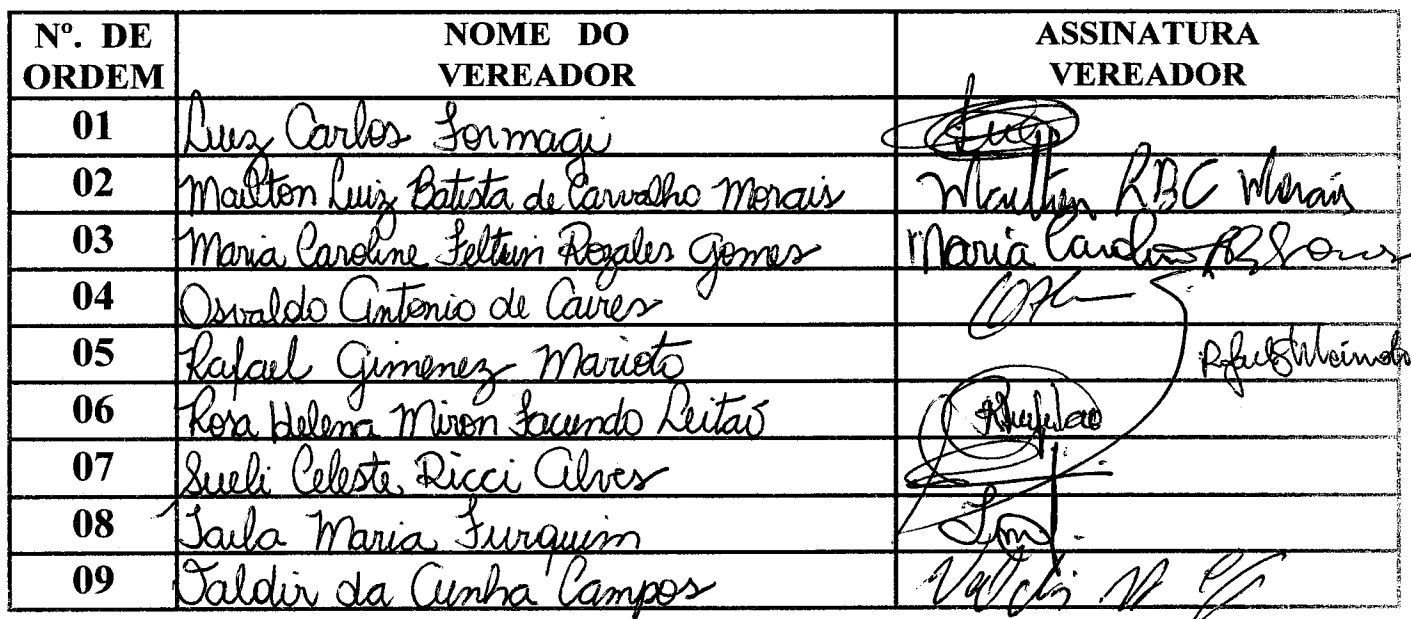 Nº. DE ORDEM NOME DO VEREADOR ASSINATURA VEREADOR
01 Luiz Carlos Formagi
02 Mailton Luiz Batista de Carvalho Morais RBC Morais
03 Maria Caroline Feltrin Rozales Gomes Maria
04 Osvaldo Antonio de Caires
05 Rafael Gimenez Marioto
06 Rosa Helena Miron Facundo Leitão
07 Sueli Celeste Ricci Alves
08 Taila Maria Furquim
09 Valdir da Cunha Campos